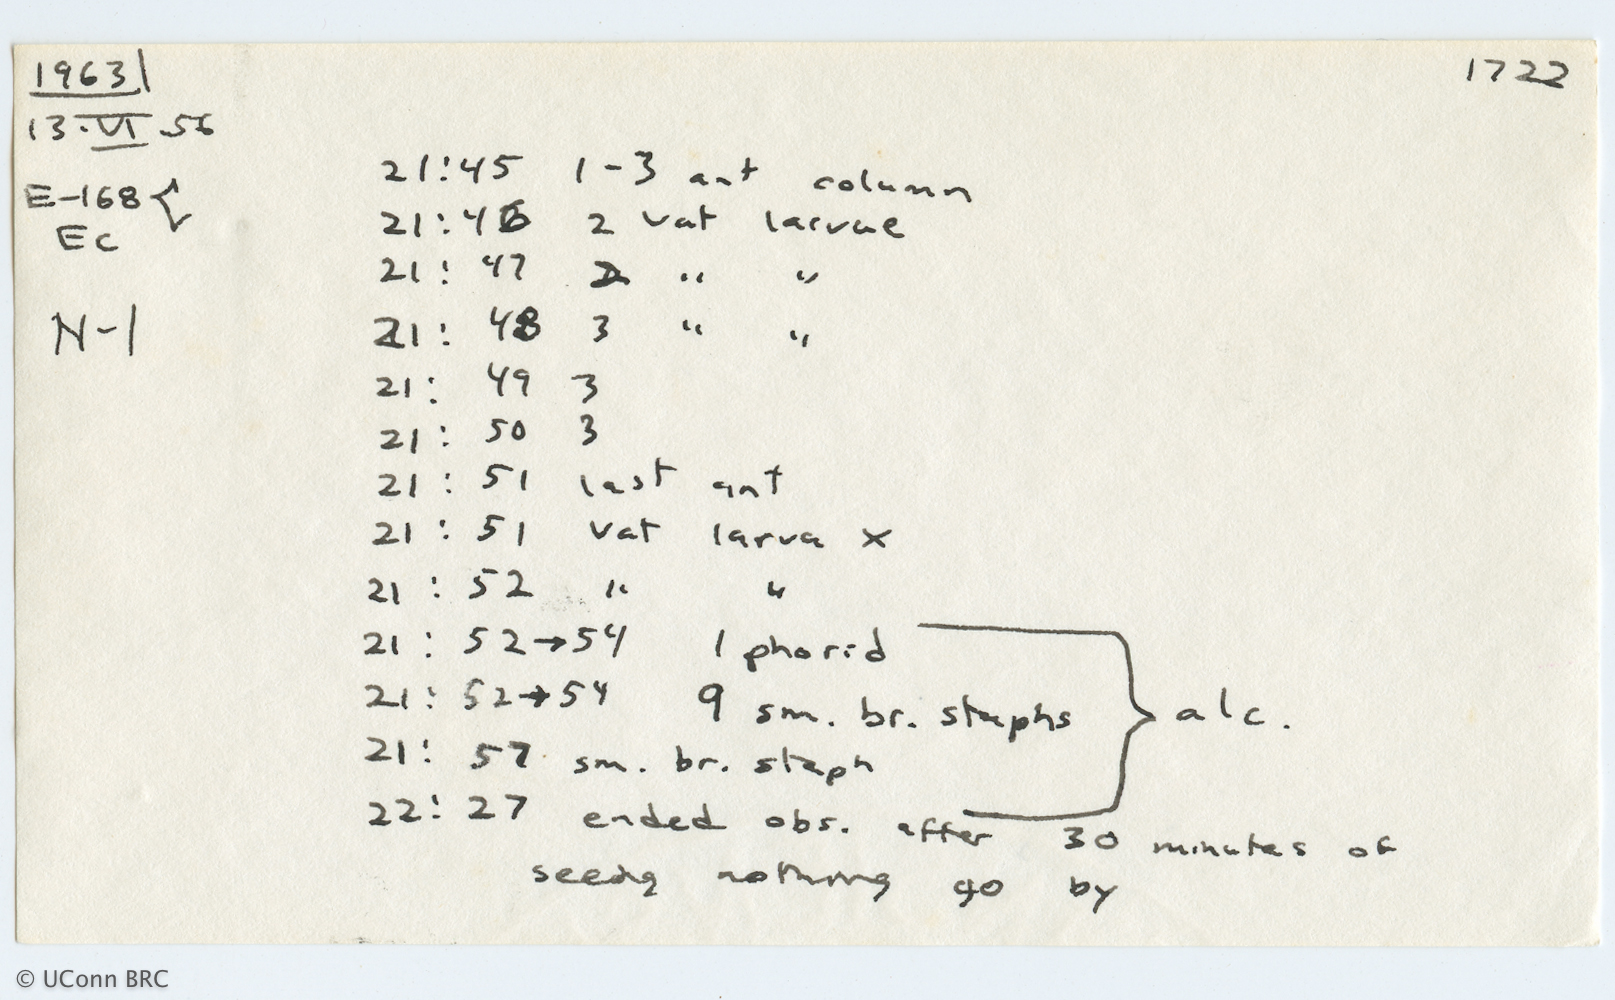 1963
1722
13.VI.56
E-168
Ec
N-1
21:45 1-3 ant column
21:46 2 vat larvae
21:47 2 " "
21:48 3 " "
21:49 3
21:50 3
21:51 last ant
21:51 vat larva x
21:52 " "
21:52→54 1 phorid
21:52→54 9 sm. br. staphs
alc.
21:57 sm. br. staph
22:27 ended obs. after 30 minutes of
seeing nothing go by
© UConn BRC